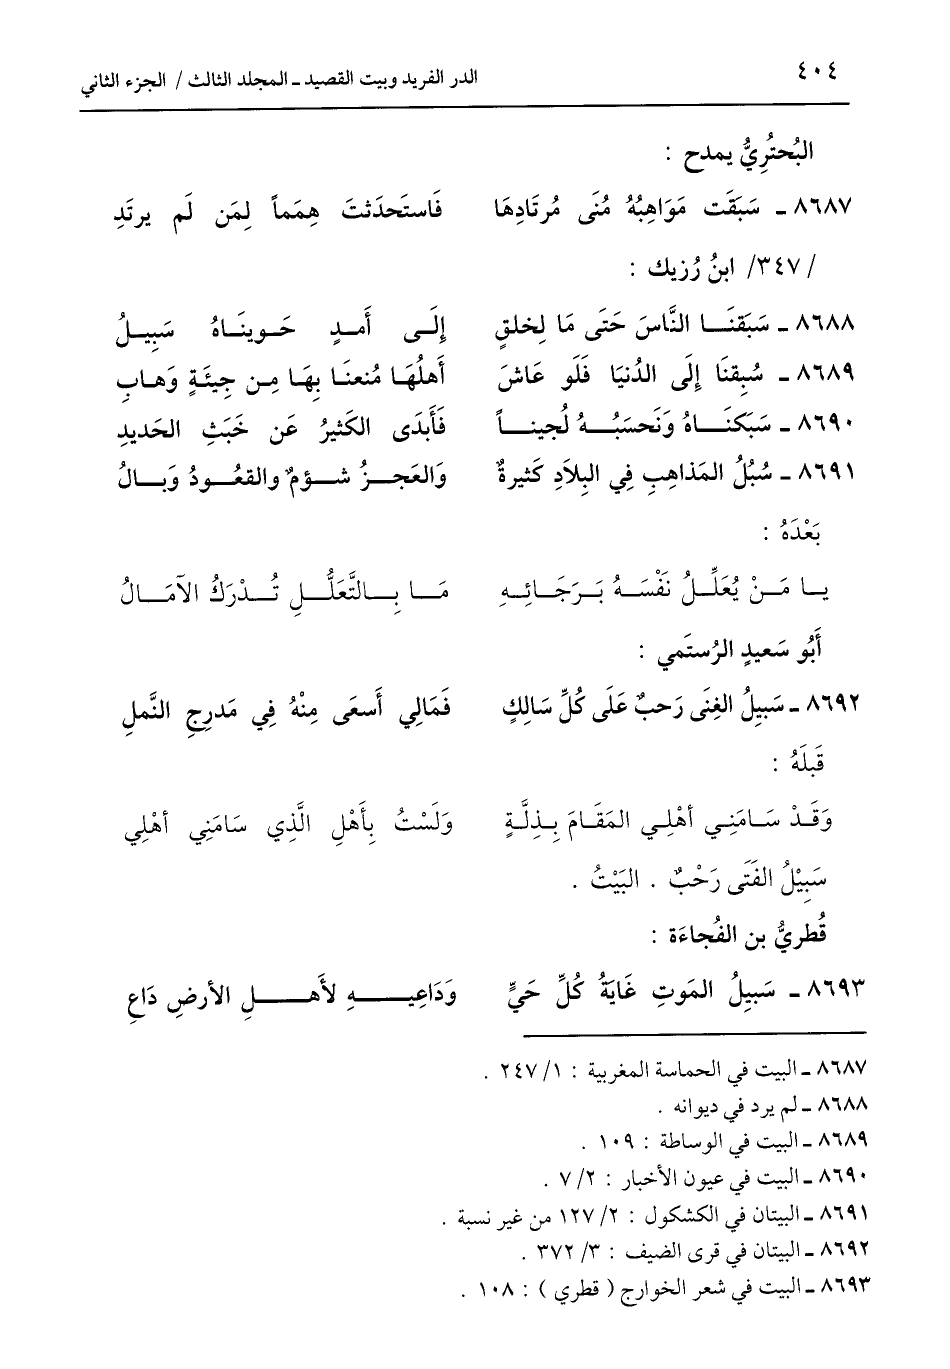 ٤٠٤ الدر الفريد وبيت القصيد ـ المجلد الثالث / الجزء الثاني
البُحتُرِيُّ يمدح :
٨٦٨٧ ـ سَبَقَت مَوَاهِبُهُ مُنَى مُرتَادِهَا فَاستَحدَثتَ هِمَماً لِمَن لَم يرتَدِ
/٣٤٧/ ابنُ رُزيك :
٨٦٨٨ ـ سَبَقنَا النَّاسَ حَتَى مَا لِخلقٍ إِلَى أَمدٍ حَوينَاهُ سَبِيلُ
٨٦٨٩ ـ سُبِقنَا إِلَى الدُنيَا فَلَو عَاشَ أَهلُهَا مُنعنَا بِهَا مِن جِيئَةٍ وَهابِ
٨٦٩٠ ـ سَبَكنَاهُ وَنَحسَبُهُ لُجيناً فَأَبدَى الكَثيرُ عَن خَبَثِ الحَديدِ
٨٦٩١ ـ سُبُلُ المَذاهِبِ فِي البِلاَدِ كَثيرةٌ وَالعَجزُ شؤمٌ والقعُودُ وَبالُ
بَعْدَهُ :
يا مَنْ يُعَلِّلُ نَفْسَهُ بَرَجَائِهِ مَا بِالتَّعَلُّلِ تُدْرَكُ الآمَالُ
أَبُو سَعيدٍ الرُستَمي :
٨٦٩٢ ـ سَبيلُ الغِنَى رَحبٌ عَلَى كُلِّ سَالِكٍ فَمَالِي أَسعَى مِنْهُ فِي مَدرِجِ النَّملِ
قَبلَهُ :
وَقَدْ سَامَنِي أَهْلِي المَقَامَ بِذِلَّةٍ وَلَسْتُ بِأَهْلِ الَّذِي سَامَنِي أَهْلِي
سَبِيْلُ الفَتَى رَحْبٌ . البَيْتُ .
قُطرِيُّ بن الفُجاءَة :
٨٦٩٣ ـ سَبِيلُ المَوتِ غَايَةُ كُلِّ حَيٍّ وَدَاعِيهِ لأَهلِ الأَرضِ دَاعِ
٨٦٨٧ ـ البيت في الحماسة المغربية : ١/ ٢٤٧ .
٨٦٨٨ ـ لم يرد في ديوانه .
٨٦٨٩ ـ البيت في الوساطة : ١٠٩ .
٨٦٩٠ ـ البيت في عيون الأخبار : ٢/ ٧ .
٨٦٩١ ـ البيتان في الكشكول : ٢/ ١٢٧ من غير نسبة .
٨٦٩٢ ـ البيتان في قرى الضيف : ٣/ ٣٧٢ .
٨٦٩٣ ـ البيت في شعر الخوارج ( قطري ) : ١٠٨ .